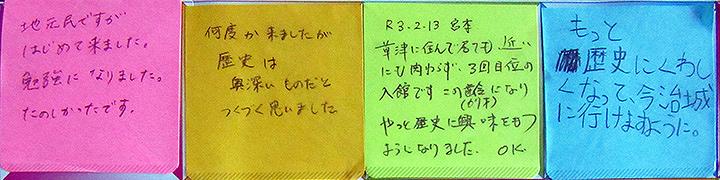 地元民ですが
はじめて来ました。
勉強に なりました。
たのしかったです。
何度か来ましたが
歴史は
奥深いものだと
つくづく思いました
R3.2.13 宮本
草津に住んで居ても 近い
にも関わらず、3回目位の
入館です この
になり
やっと歴史に興味をもつ
ようになりました。 OK
もっと
歴史にくわし
くなって、今治城
に行けますように。